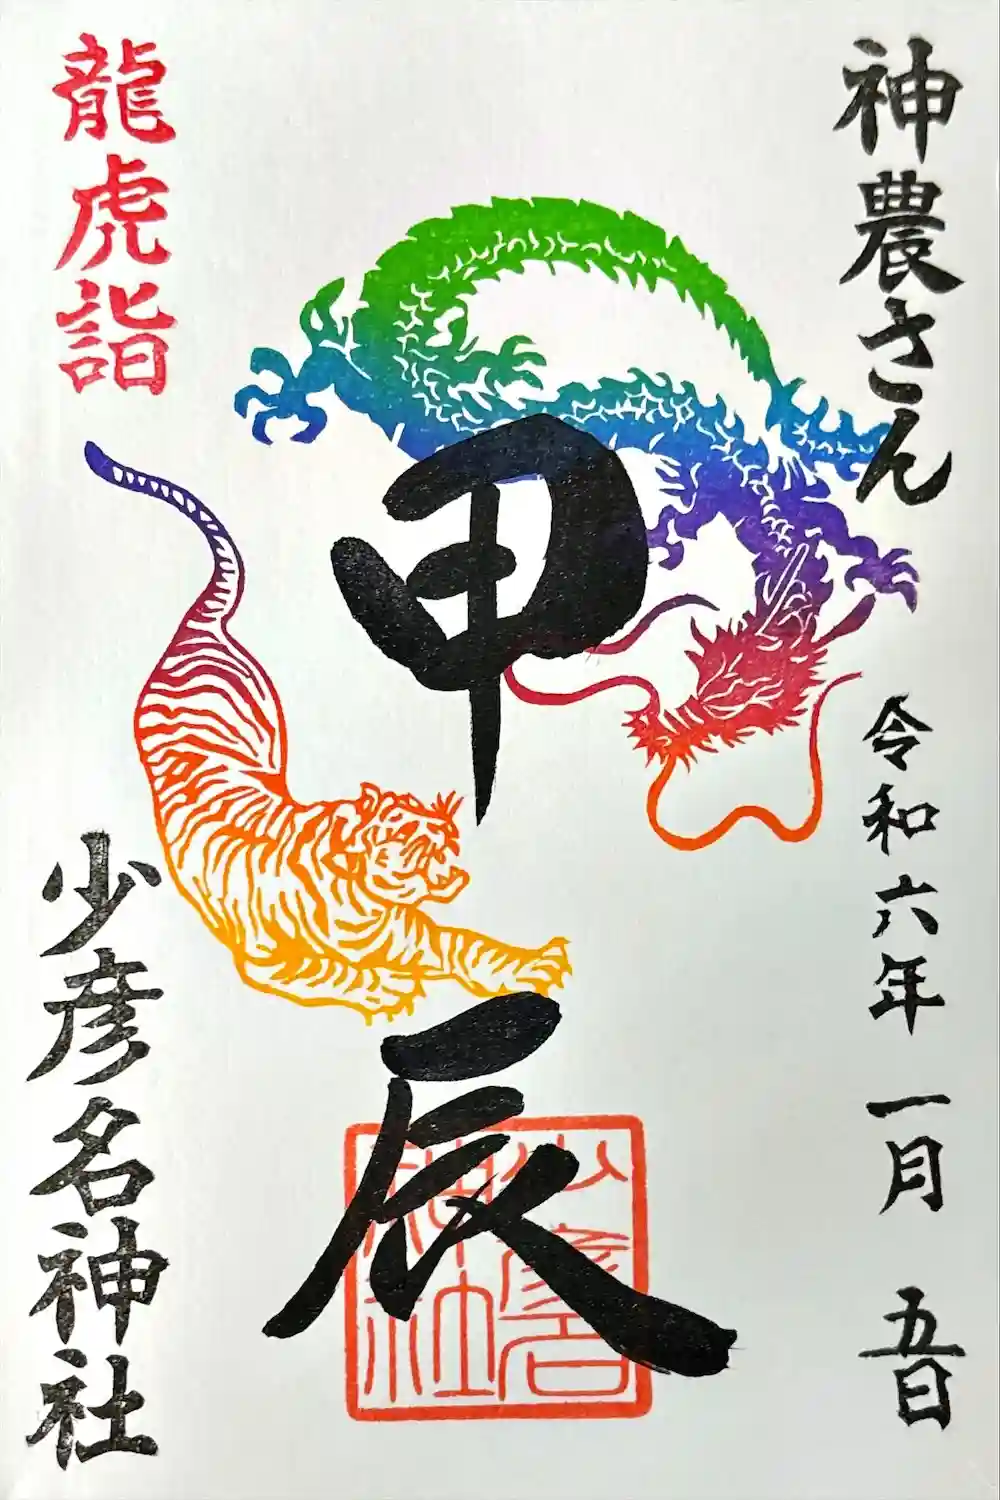 神農さん 令和六年 一月 五日
甲辰
龍虎詣
少彦名神社
少彦名神社